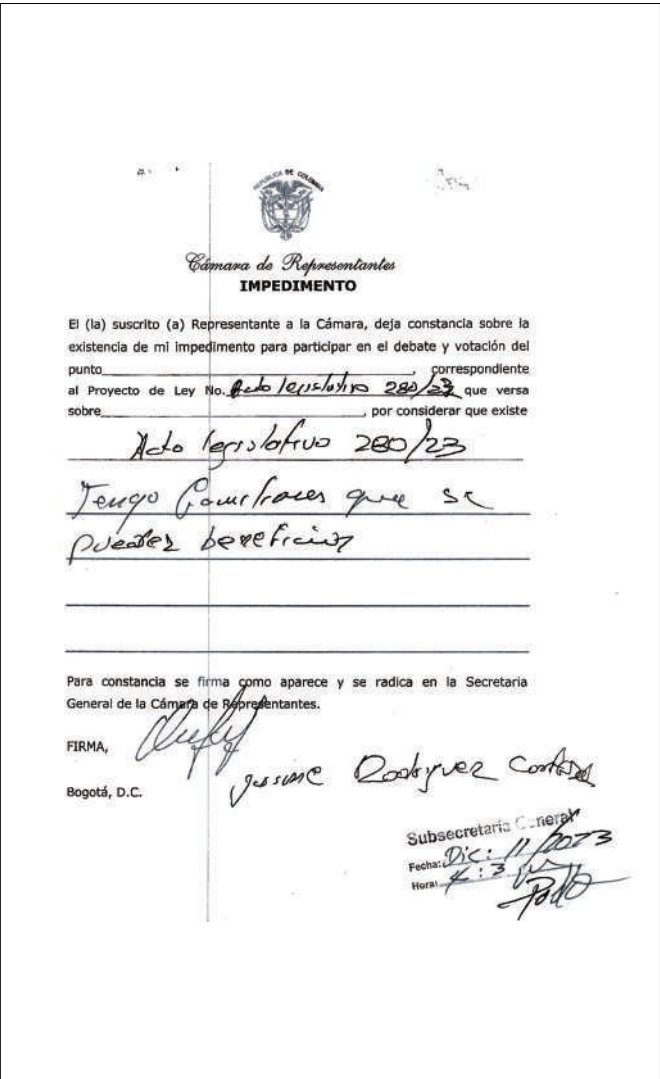 REPUBLICA DE COLOMBIA
Cámara de Representantes
IMPEDIMENTO
El (la) suscrito (a) Representante a la Cámara, deja constancia sobre la
existencia de mi impedimento para participar en el debate y votación del
punto____________, correspondiente
al Proyecto de Ley No. Acto legislativo 280/23 que versa
sobre____________, por considerar que existe
Acto legislativo 280/23
Tengo familiares que se
pueden beneficiar
Para constancia se firma como aparece y se radica en la Secretaria
General de la Cámara de Representantes.
FIRMA,
Rodriguez
Bogotá, D.C.
Subsecretaria General
Fecha: Dic: 11/2023
Hora: 4:3